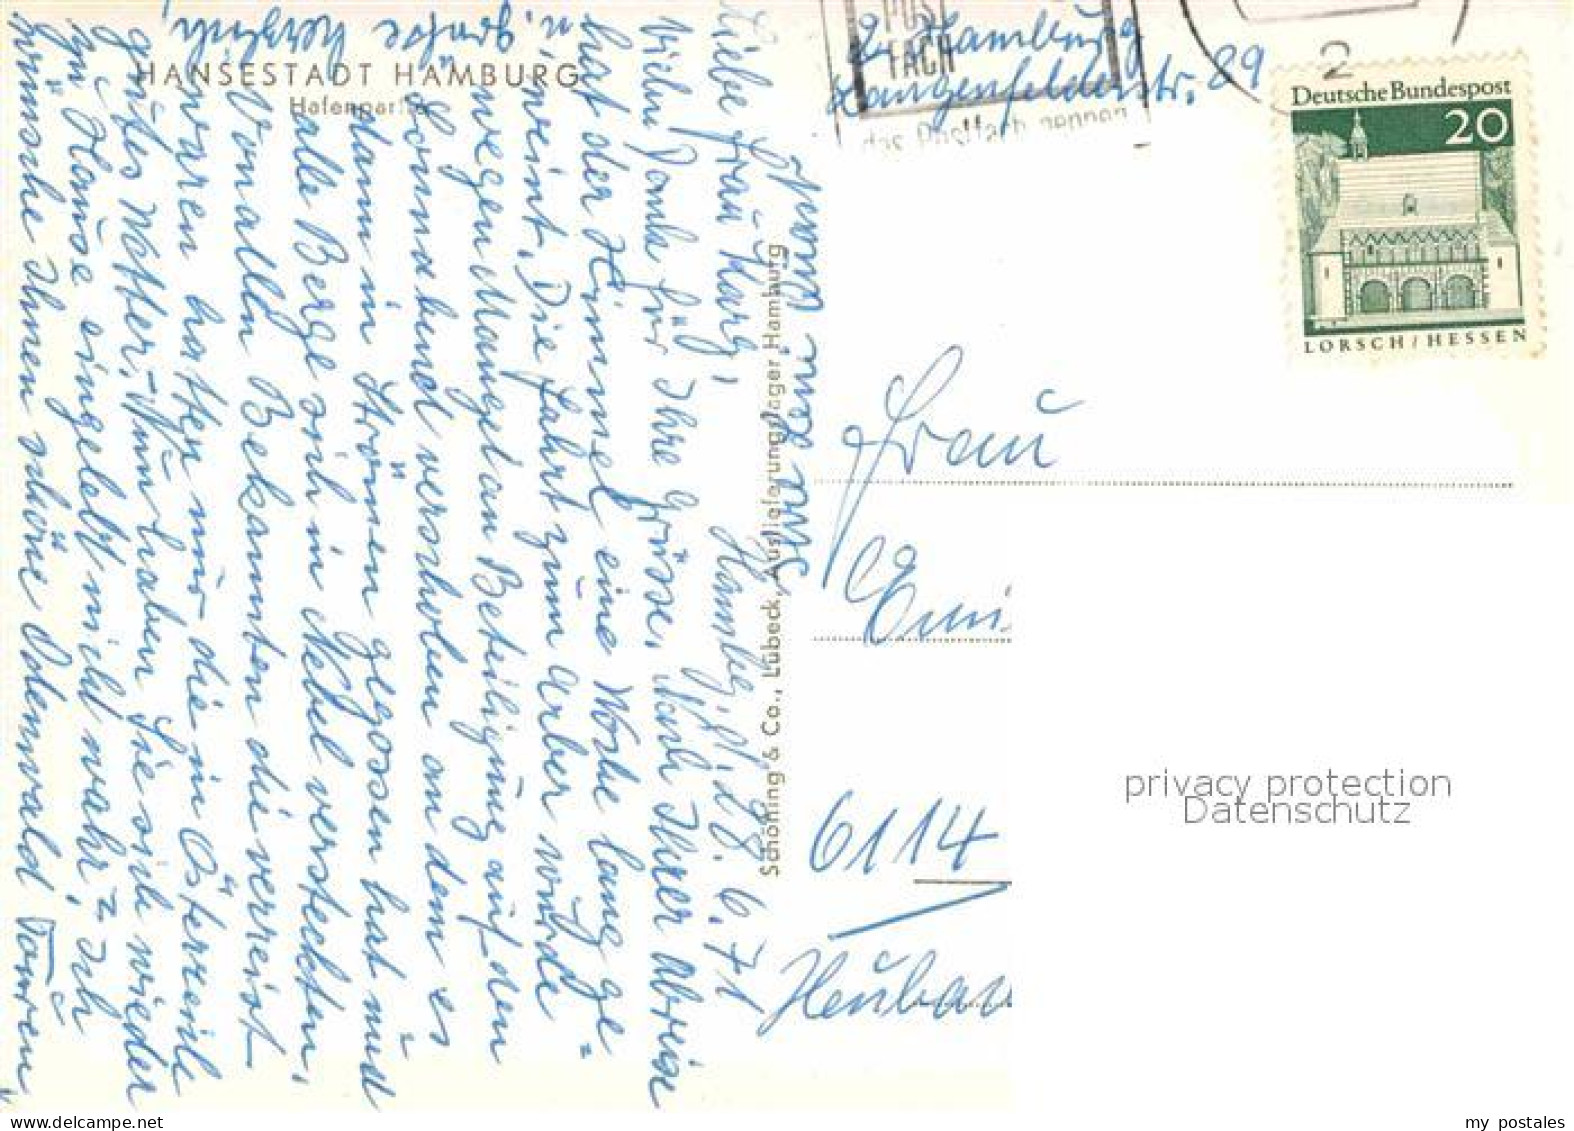 HANSESTADT HAMBURG
Hafenpartie
Hambg., d. 28. 6. 71
Liebe Frau Karg,
vielen Dank für Ihre Grüsse. Nach Ihrer Abreise
hat der Himmel eine Woche lang ge=
weint. Die Fahrt zum Arber wurde
wegen Mangel an Beteiligung auf den
Sonnabend verschoben an dem es
dann in Strömen gegossen hat und
alle Berge sich in Nebel versteckten.
Von allen Bekannten die verreist
waren hatten nur die in Österreich
gutes Wetter. - Nun haben Sie sich wieder
zu Hause eingelebt nicht wahr? Ich
wünsche Ihnen schöne Odenwald Touren
u. grüße herzlich
Ihre
2 Hamburg
Langenfelderstr. 89
Schöning & Co., Lübeck, Auslieferungslager Hamburg
POST
FACH
das Postfach nennen
2
Deutsche Bundespost
20
LORSCH / HESSEN
Frau
6114
privacy protection
Datenschutz
my postales